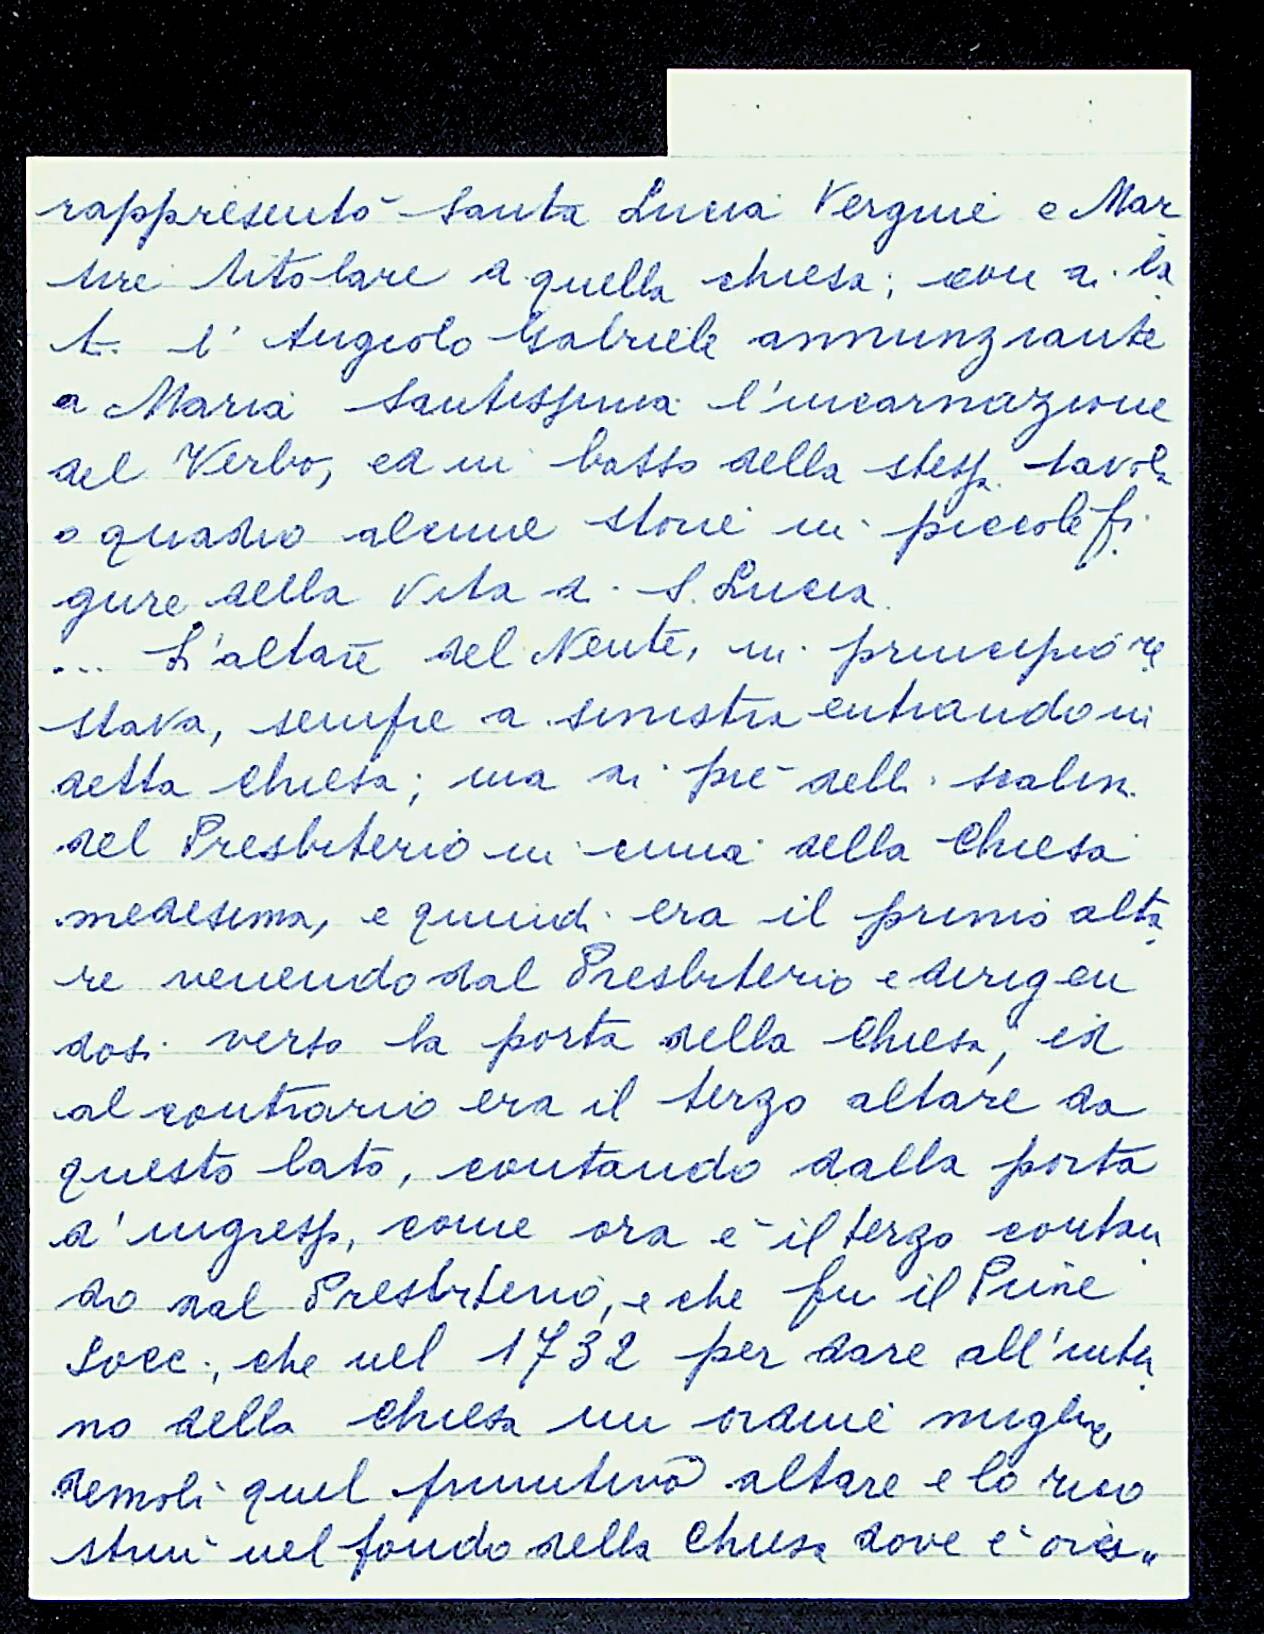 rappresentò Santa Lucia Vergine e Mar
tire titolare d quella chiesa; con ai la
ti l'Angiolo Gabriele annunziante
a Maria Santissima l'incarnazione
del Verbo, ed in basso della stessa tavola
o quadro alcune storie in piccole fi
gure della Vita di S. Lucia.
... L'altare del Nente, in principio re
stava, sempre a sinistra entrando in
detta Chiesa; ma ai piè delli scalini
del Presbiterio in cima della Chiesa
medesima, e quindi era il primo alta
re venendo dal Presbiterio e dirigen
dosi verso la porta della Chiesa, ed
al contrario era il terzo altare da
questo lato, contando dalla porta
d'ingresso, come ora è il terzo contan
do dal Presbiterio, e che fu il Priore
Socc., che nel 1732 per dare all'inter
no della Chiesa un ordine miglior,
demolì quel primitivo altare e lo rico
struì nel fondo della Chiesa dove è ora"